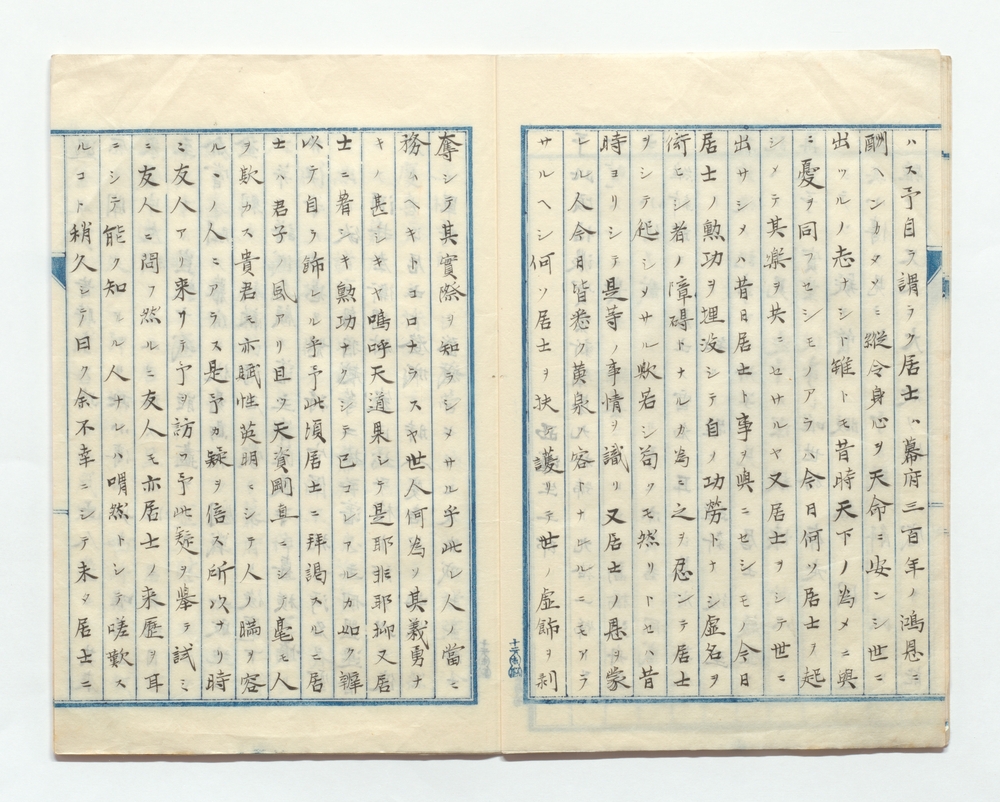 ハス予自ラ謂ラク居士ハ幕府三百年ノ鴻恩ニ
酬ヘンカタメニ縦令身心ヲ天命ニ安ンシ世ニ
出ツルノ志ナシト雖トモ昔時天下ノ為メニ與
ニ憂ヲ同フセシモノアラハ今日何ソ居士ヲ起
シメテ其楽ヲ共ニセサルヤ又居士ヲシテ世ニ
出サシメハ昔日居士ト事ヲ與ニセシモノ今日
居士ノ勲功ヲ埋没シテ自ノ功勞トナシ虚名ヲ
衒ヒシ者ノ障碍トナルカ為ニ之ヲ忍ンテ居士
ヲシテ起シメサル歟若シ苟クモ然リトセハ昔
時ヨリシテ是等ノ事情ヲ識リ又居士ノ恩ヲ蒙
レル人今日皆悉ク黄泉ノ客トナルニモアラ
サルヘシ何ソ居士ヲ扶ケ護リテ世ノ虚飾ヲ剥
奪シテ其實際ヲ知ラシメサル乎此レ人ノ當ニ
務ムヘキトコロナラスヤ世人何為ソ其義勇ナ
キノ甚シキヤ嗚呼天道果シテ是耶非耶抑又居
士ニ著シキ勲功ナクシテ已コレアルカ如ク辯
以テ自ラ飾レル乎予此頃居士ニ拜謁スルニ居
士ハ君子ノ風アリ且ツ天資剛直ニシテ毫モ人
ヲ欺カス貴君モ亦賦性英明ニシテ人ノ瞞ヲ容
ルヽノ人ニアラス是予カ疑ヲ倍ス所以ナリ時
ニ友人アリ来リテ予ヲ訪フ予此疑ヲ擧テ試ミ
ニ友人ニ問フ然ルニ友人モ亦居士ノ来歴ヲ耳
ニシテ能ク知レル人ナレハ喟然トシテ嗟歎ス
ルコト稍久シテ曰ク余不幸ニシテ未タ居士ニ